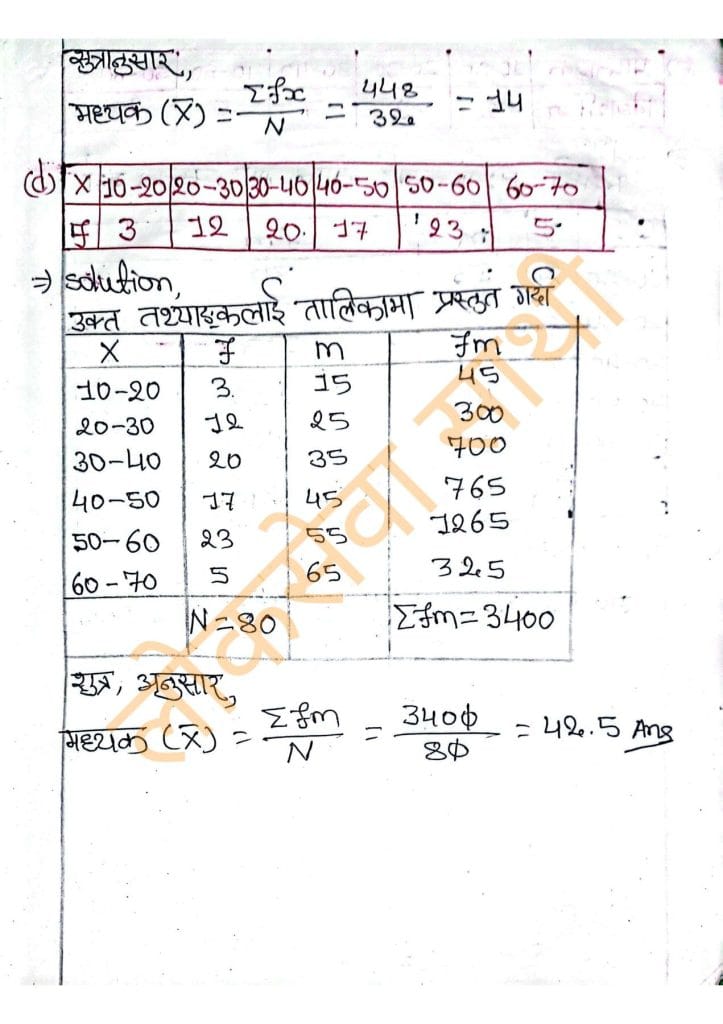 सुत्रानुसार,
मध्यक (X̄) = Σfx/N = 448/32 = 14
(d) X 10-20 20-30 30-40 40-50 50-60 60-70
f 3 12 20 17 23 5
⇒ solution,
उक्त तथ्याङ्कलाई तालिकामा प्रस्तुत गर्दा
X f m fm
10-20 3 15 45
20-30 12 25 300
30-40 20 35 700
40-50 17 45 765
50-60 23 55 1265
60-70 5 65 325
N = 80 Σfm = 3400
सुत्र, अनुसार,
मध्यक (X̄) = Σfm/N = 3400/80 = 42.5 Ans
लोकसेवा साथी